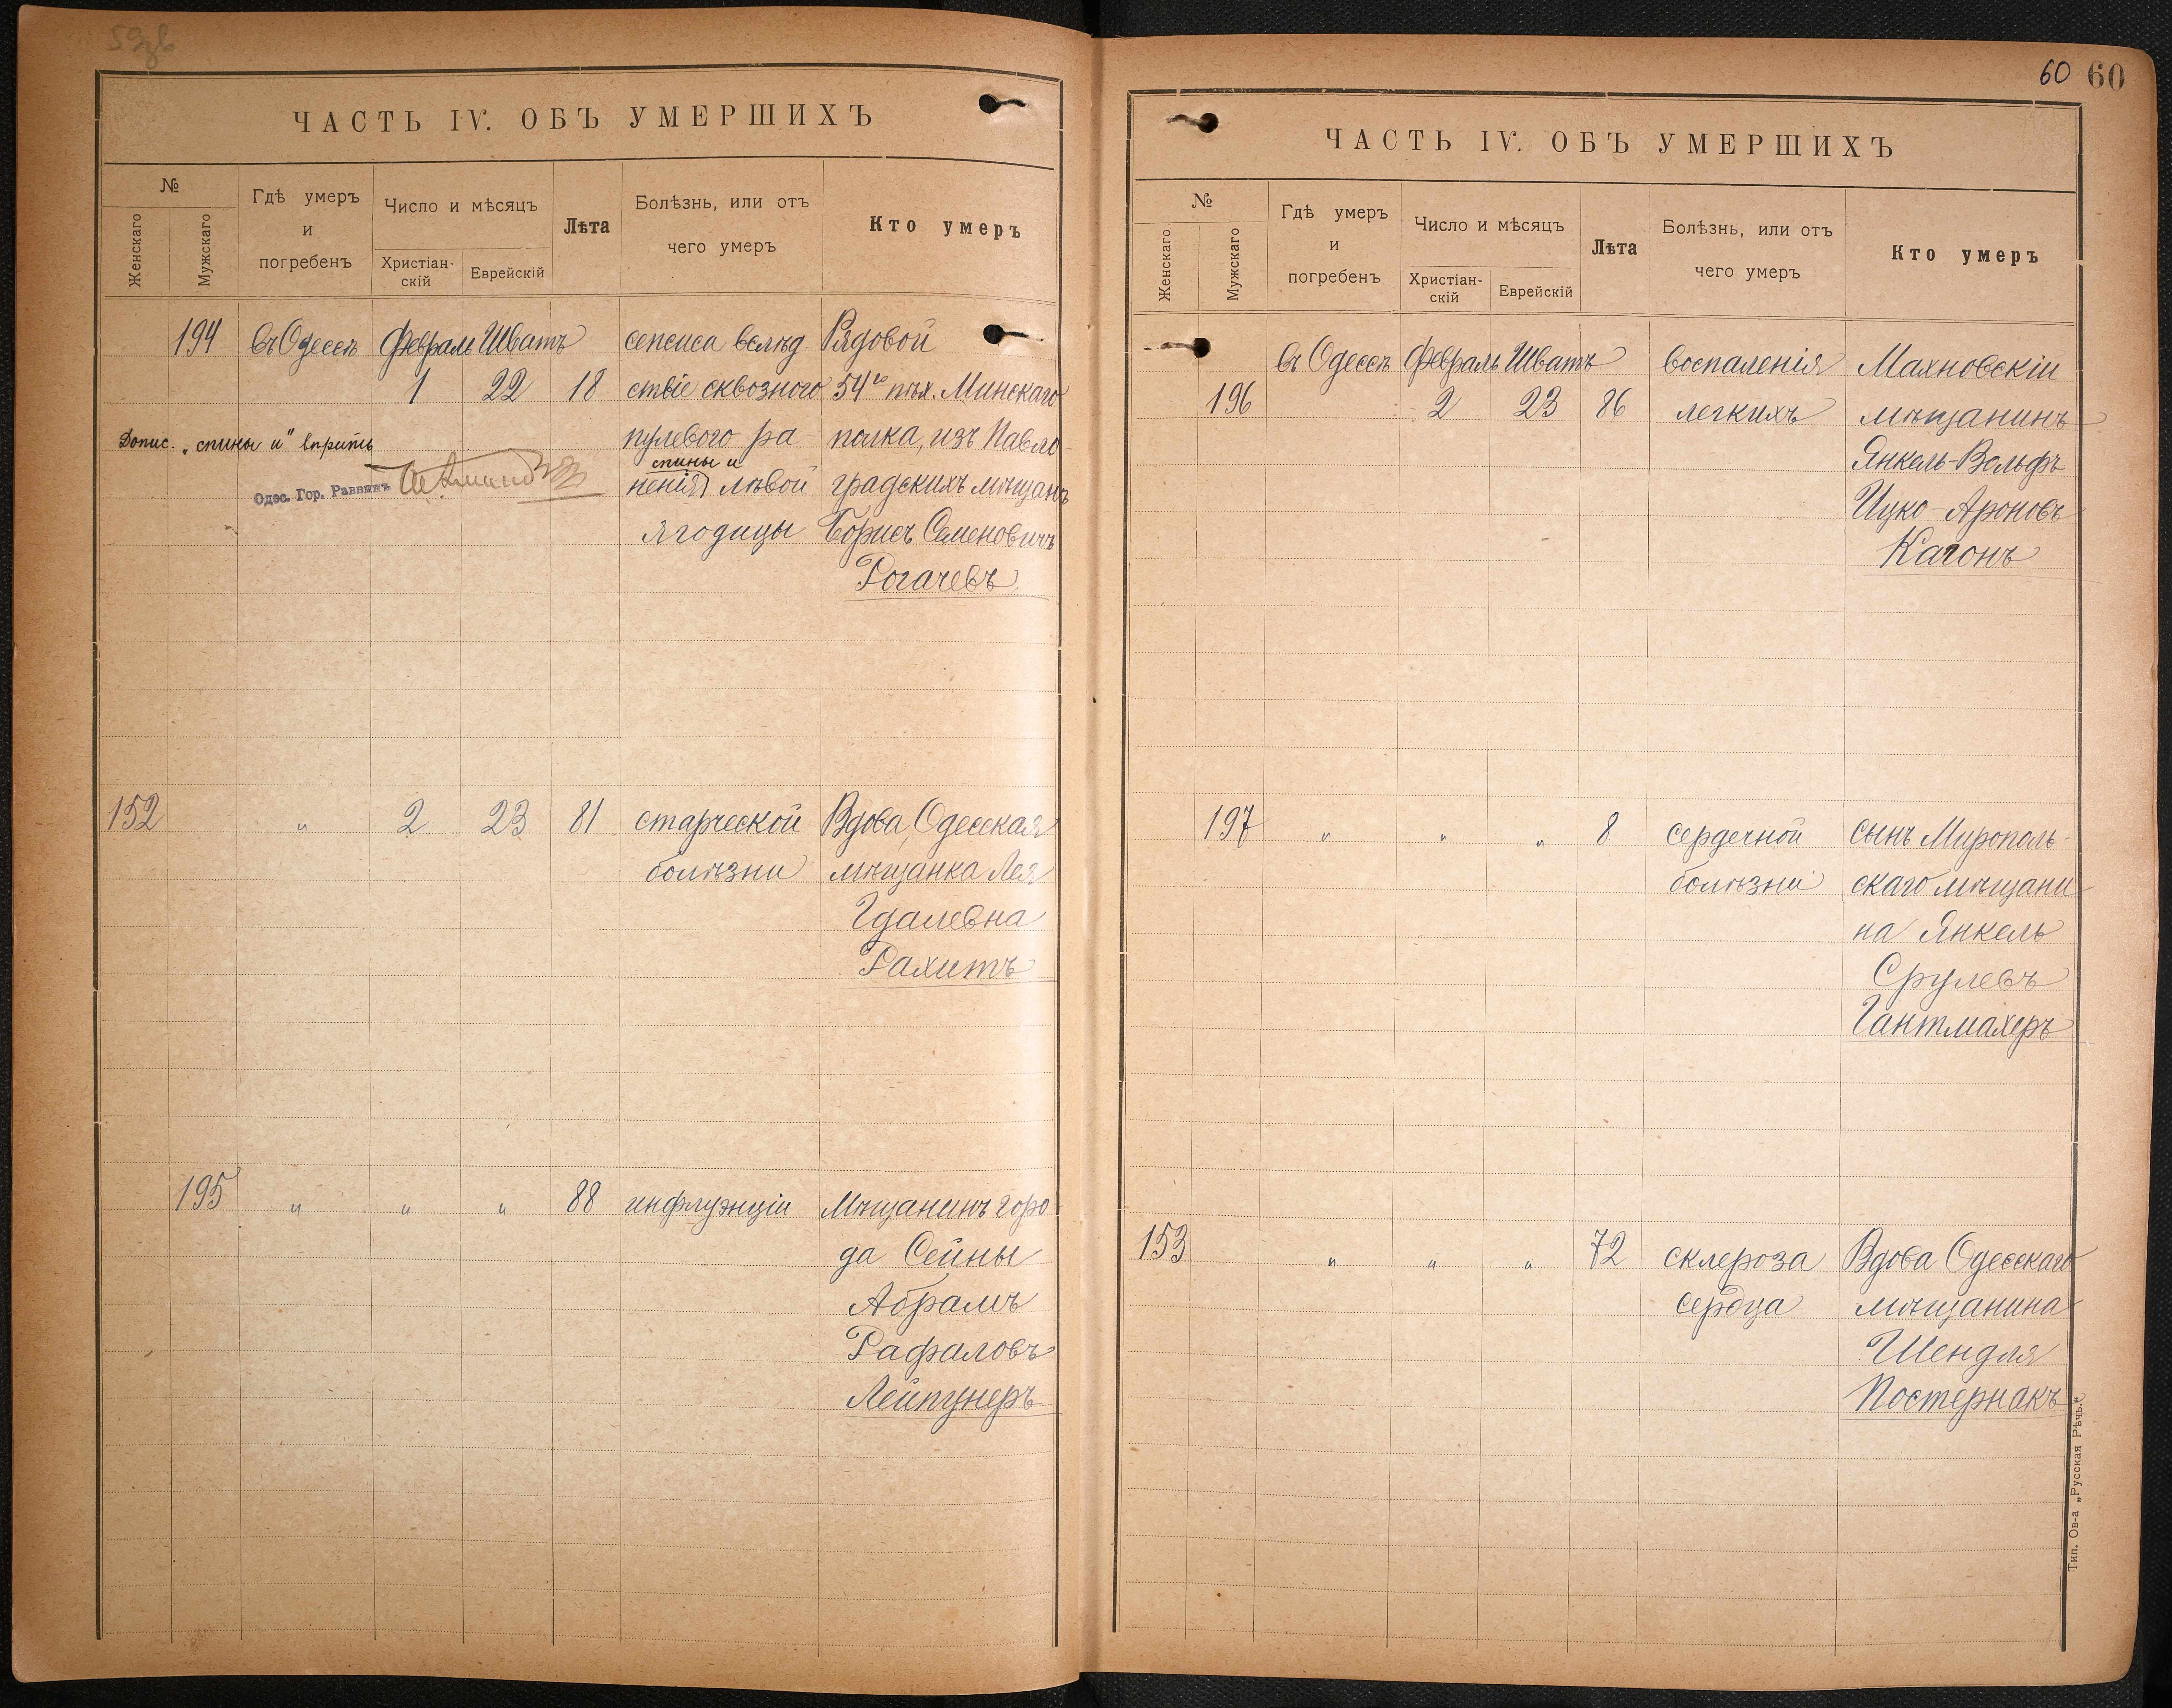 ЧАСТЬ IV. ОБЪ УМЕРШИХЪ
№
Женскаго
Мужскаго
Гдѣ умеръ
и
погребенъ
Число и мѣсяцъ
Христіан-
скій
Еврейскій
Лѣта
Болѣзнь, или отъ
чего умеръ
Кто умеръ
194 въ Одессѣ Февраль Шватъ сепсиса вслѣд Рядовой
1 22 18 ствіе сквозного 54го пѣх. Минскаго
Допис. „спины и" вѣрить
пулевого ра полка, изъ Павло
спины и
Одес. Гор. Раввинъ
ненія лѣвой градскихъ мѣщанъ
ягодицы Борисъ Семеновичъ
Рогачевъ
152 " 2 23 81 старческой Вдова, Одесская
болѣзни мѣщанка Лея
Гдалевна
Рахитъ
195 " " " 88 инфлуэнціи Мѣщанинъ горо
да Сейны
Абрамъ
Рафаловъ
Лейпунеръ
60 60
ЧАСТЬ IV. ОБЪ УМЕРШИХЪ
№
Женскаго
Мужскаго
Гдѣ умеръ
и
погребенъ
Число и мѣсяцъ
Христіан-
скій
Еврейскій
Лѣта
Болѣзнь, или отъ
чего умеръ
Кто умеръ
въ Одессѣ Февраль Шватъ воспаленія Махновскій
196 2 23 86 легкихъ мѣщанинъ
Янкель-Вольфъ
Ицко-Ароновъ
Кагонъ
197 " " " 8 сердечной сынъ Мирополь-
болѣзни скаго мѣщани
на Янкель
Срулевъ
Гантмахеръ
153 " " " 72 склероза Вдова Одесскаго
сердца мѣщанина
Шендля
Постернакъ
Тип. Ов-а „Русская Рѣчь."